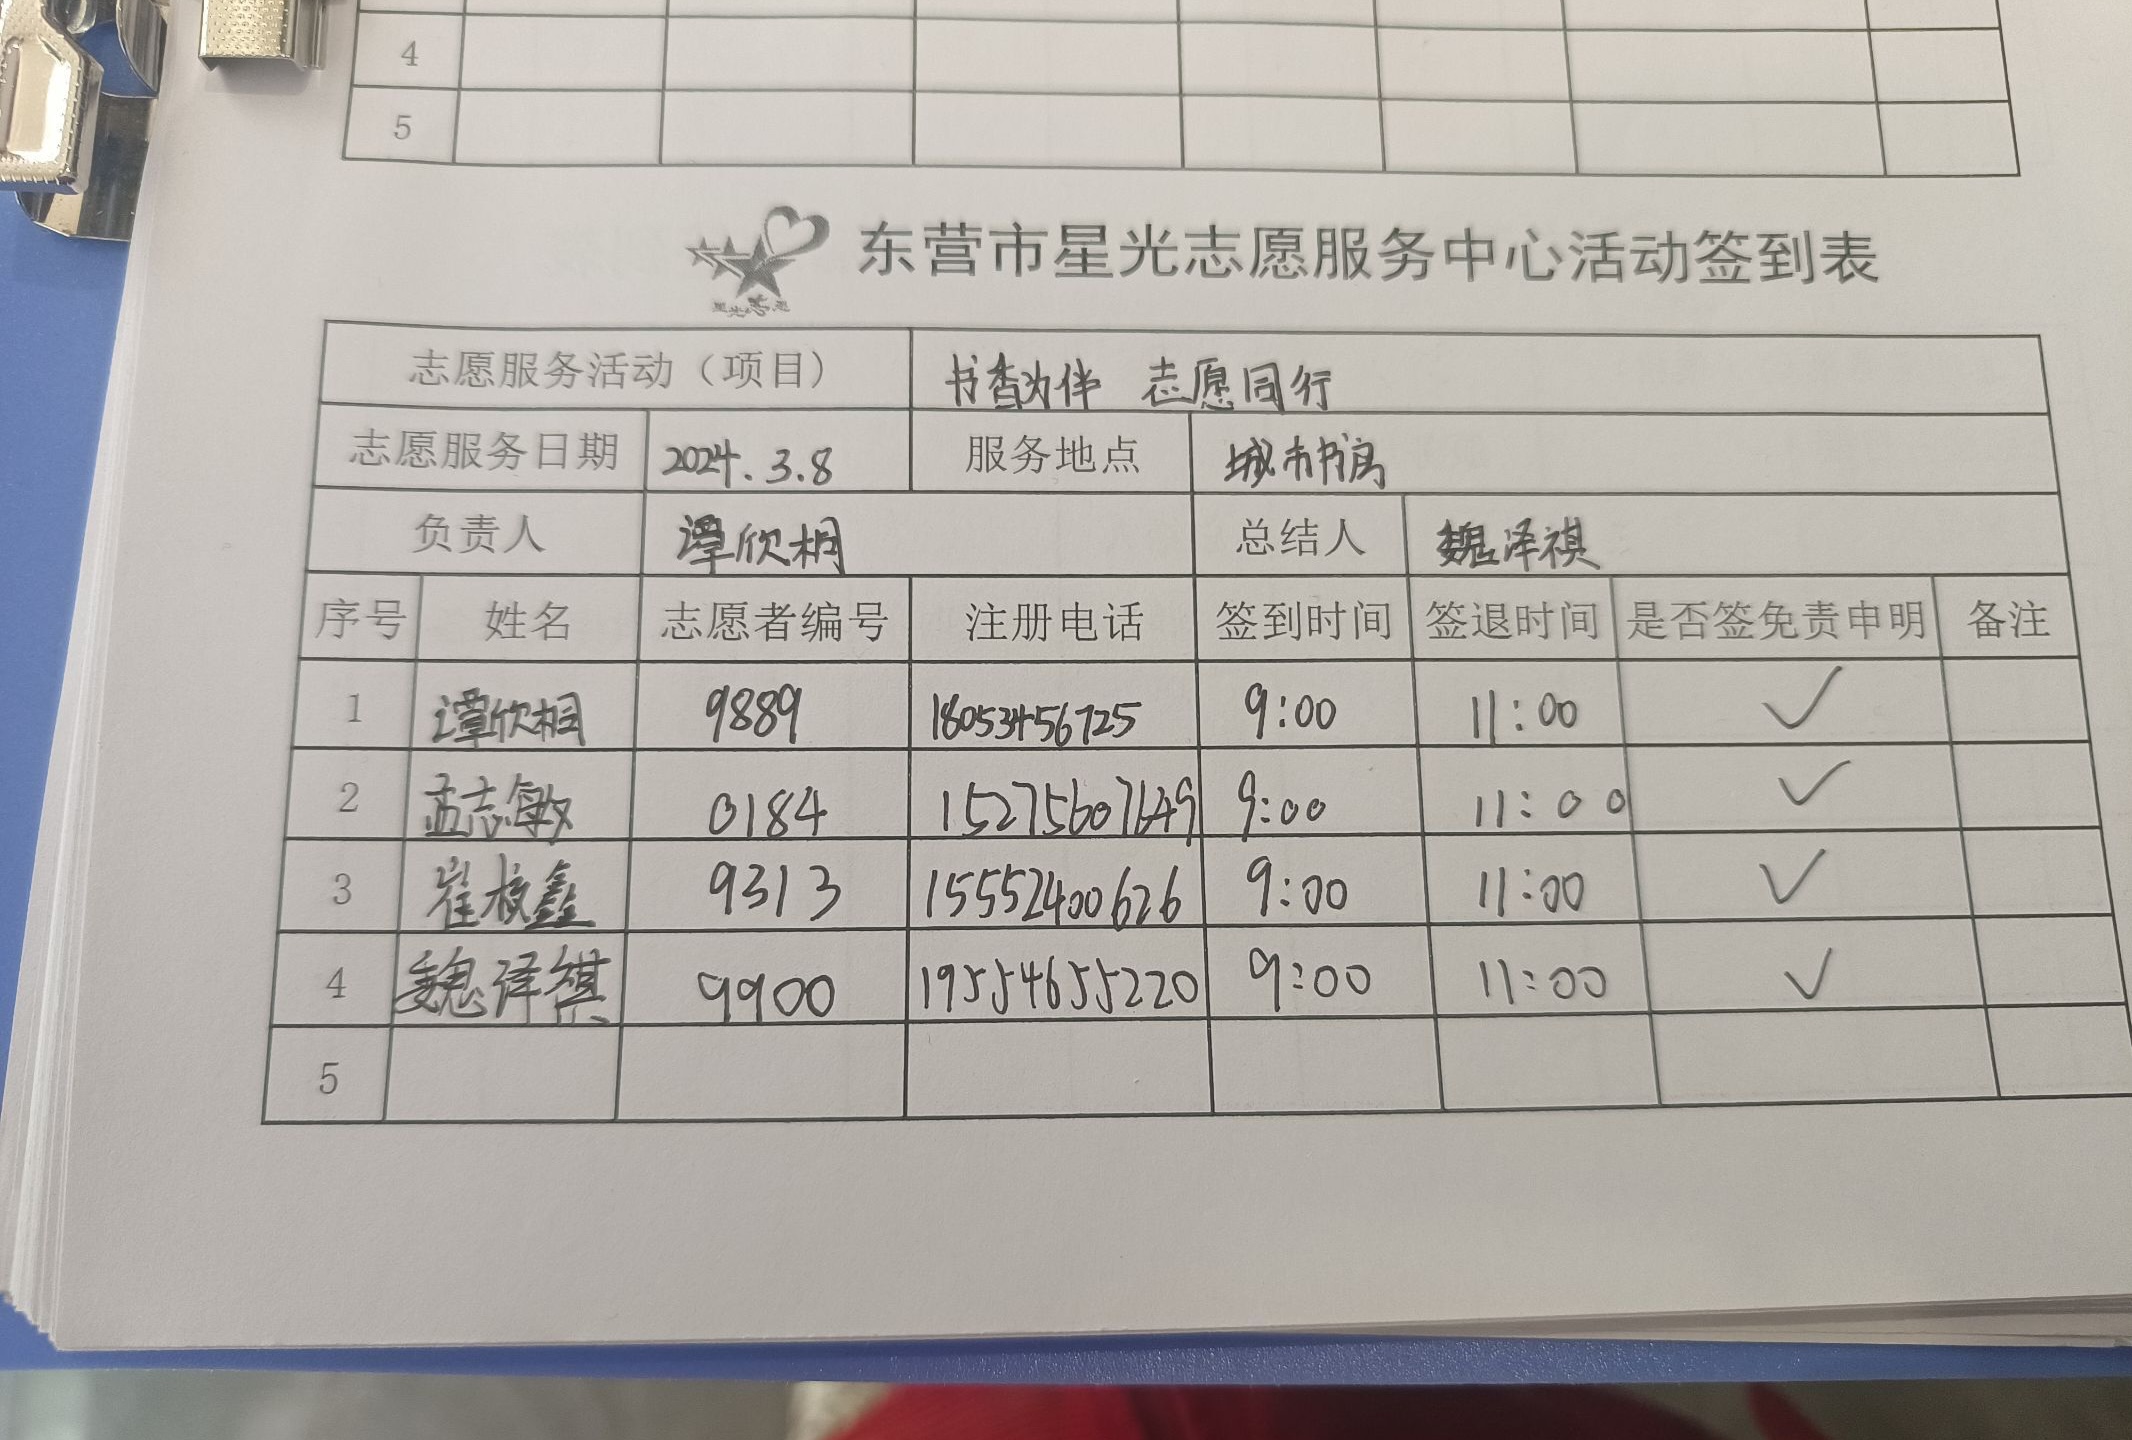 4
5
东营市星光志愿服务中心活动签到表
志愿服务活动（项目） 书香为伴 志愿同行
志愿服务日期 2024.3.8 服务地点 城市书房
负责人 谭欣桐 总结人 魏泽祺
序号 姓名 志愿者编号 注册电话 签到时间 签退时间 是否签免责申明 备注
1 谭欣桐 9889 18053456725 9:00 11:00 ✓
2 孟志敏 0184 15275607649 9:00 11:00 ✓
3 崔校鑫 9313 15552400626 9:00 11:00 ✓
4 魏泽祺 9900 19554655220 9:00 11:00 ✓
5